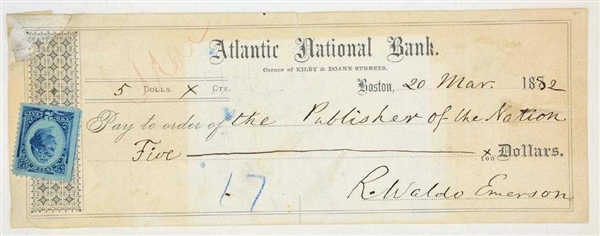 Atlantic National Bank.
Corner of KILBY & DOANE STREETS.
5 DOLLS. x CTS. Boston, 20 Mar. 1882
Pay to order of the Publisher of the Nation
Five x/100 Dollars.
17
R. Waldo Emerson